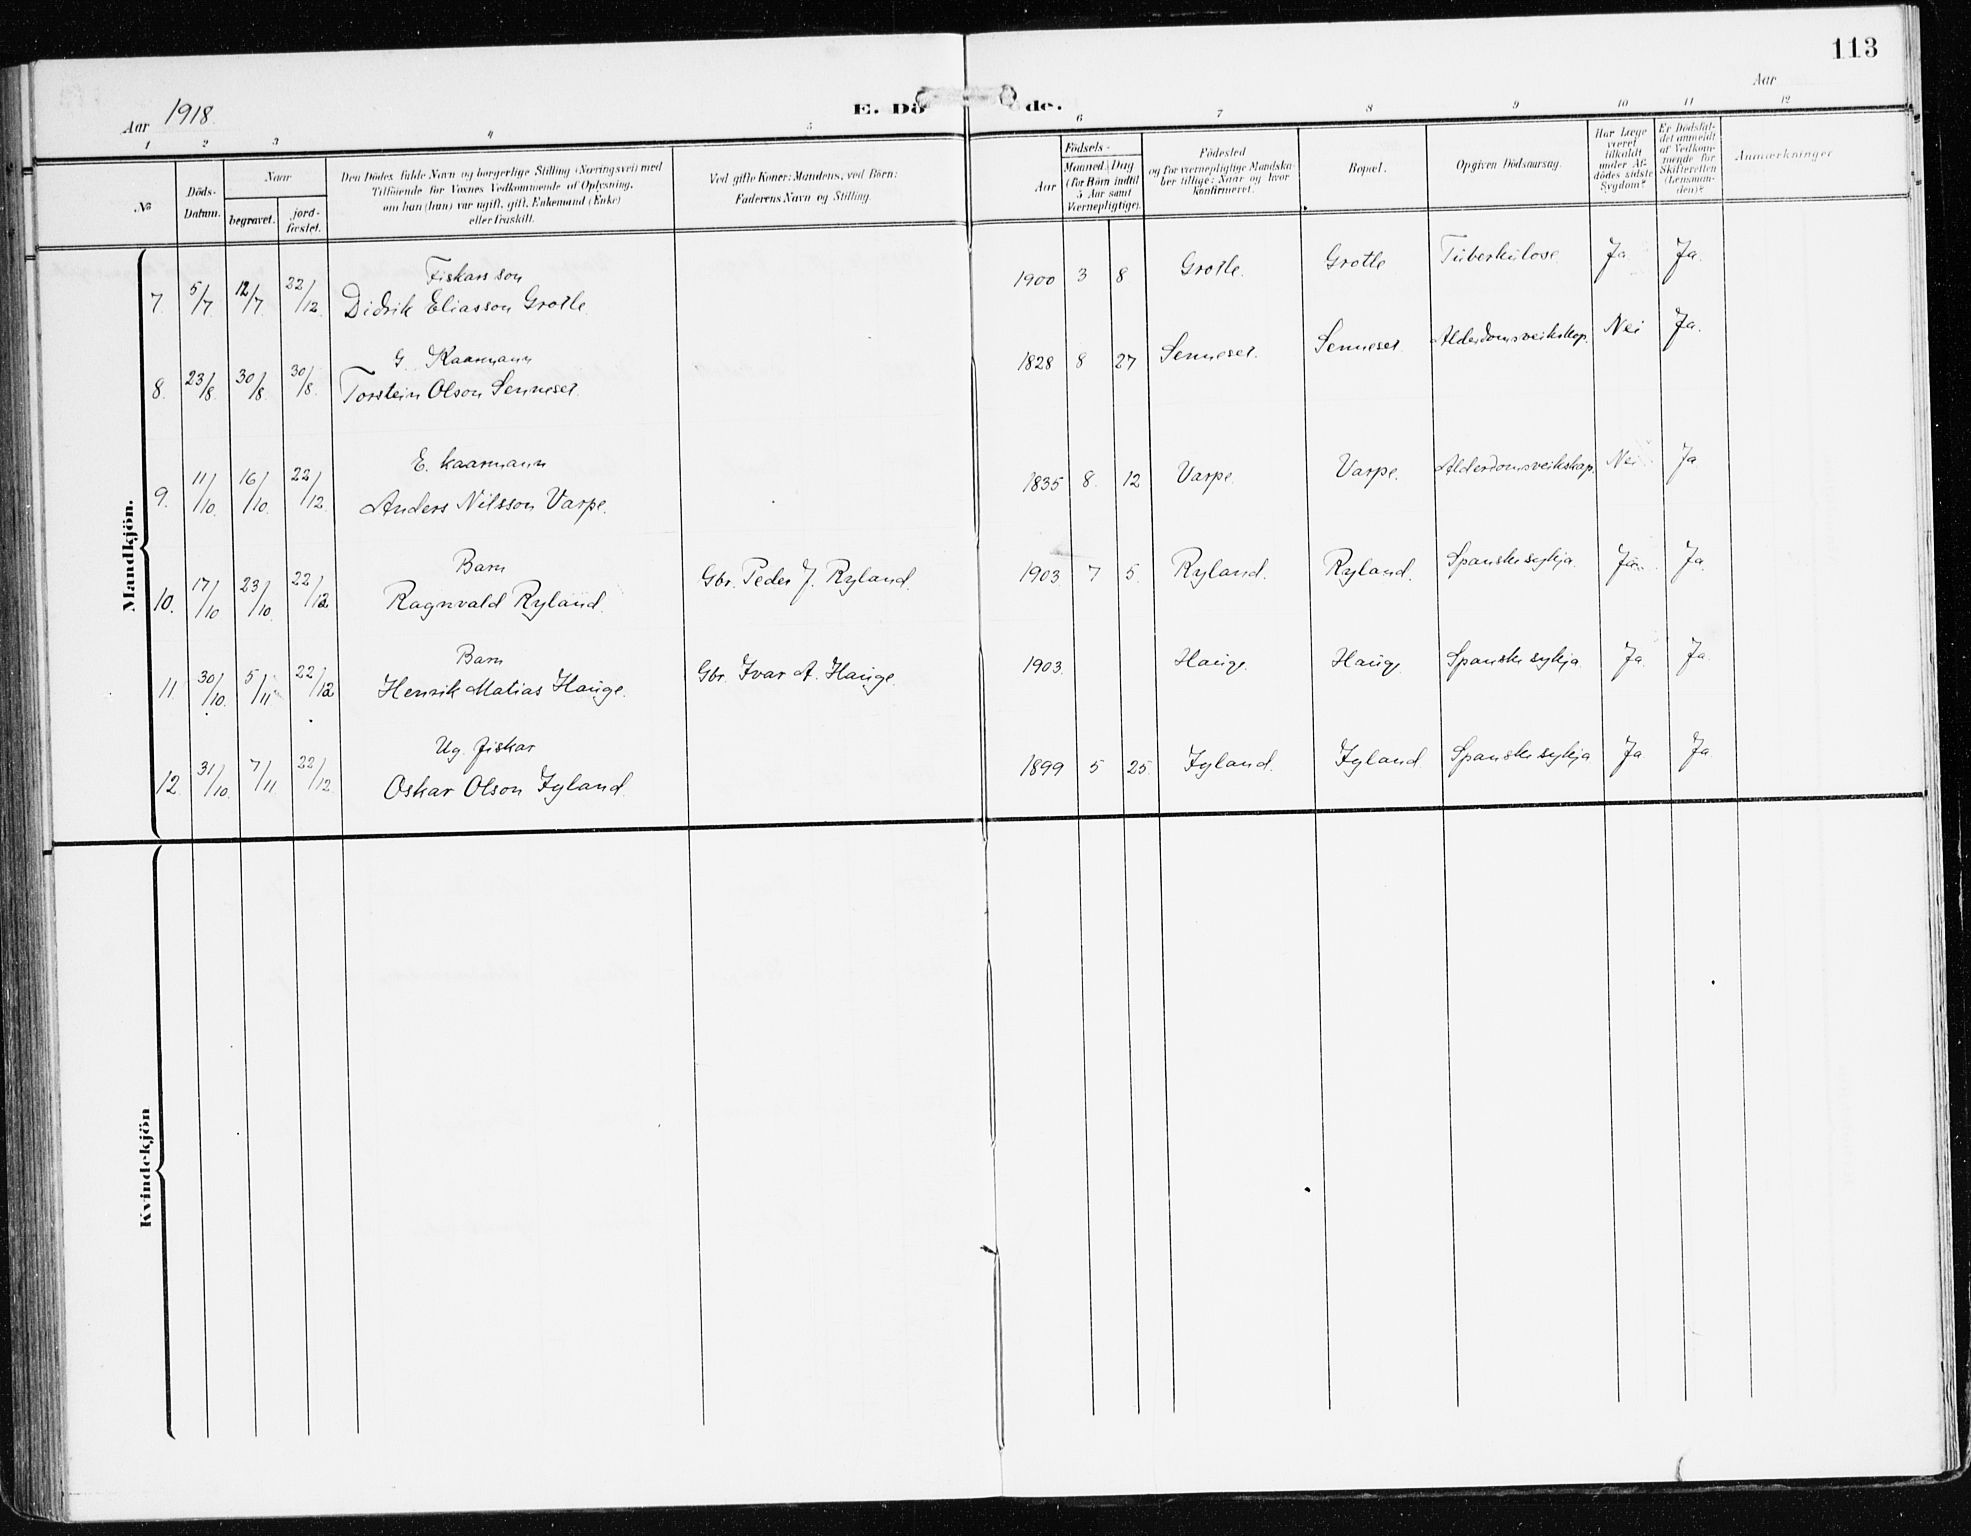 113
Aar 1918.
E. Dö de.
Aar
1 2 3 4 5 6 7 8 9 10 11 12
No
Döds-
Datum.
Naar
begravet.
jord-
fæstet.
Den Dödes fulde Navn og borgerlige Stilling (Næringsvei) med
Tilföiende for Voxnes Vedkommende af Oplysning,
om han (hun) var ugift, gift, Enkemand (Enke)
eller fraskilt.
Ved gifte Koner: Mandens, ved Börn:
Faderens Navn og Stilling.
Födsels-
Aar
Maaned. Dag
(for Börn indtil
5 Aar samt
Værnepligtige).
Födested
og for værnepligtige Mandska-
ber tillige: Naar og hvor
konfirmeret.
Bopæl.
Opgiven Dödsaarsag.
Har Læge
været
tilkaldt
under Af-
dödes sidste
Sygdom?
Er Dödsfal-
det anmeldt
af Vedkom-
mende for
Skifteretten
(Lensman-
den)?
Anmærkninger
Mandkjön.
Fiskars son
7. 5/7 12/7 22/12 Didrik Eliasson Grotle 1900 3 8 Grotle. Grotle Tuberkulose Ja Ja.
G. Kaarmann
8. 23/8 30/8 30/8 Torstein Olson Senneset. 1828 8 27 Senneset. Senneset Alderdomsveikskap. Nei Ja.
E. Kaarmann
9. 11/10 16/10 22/12 Anders Nilsson Varpe. 1835 8. 12 Varpe. Varpe. Alderdomsveikskap. Nei Ja
Barn
10. 17/10 23/10 22/12 Ragnvald Ryland. Gbr. Peder J. Ryland. 1903 7 5. Ryland. Ryland. Spanskesykja Ja Ja.
Barn
11 30/10 5/11 22/12 Henrik Matias Hauge. Gbr. Ivar A. Hauge. 1903 Hauge. Hauge Spanskesykja Ja Ja.
Ug. fiskar
12. 31/10 7/11 22/12 Oskar Olson Iyland. 1899 5 25. Iyland. Iyland Spanskesykja Ja Ja.
Kvindekjön